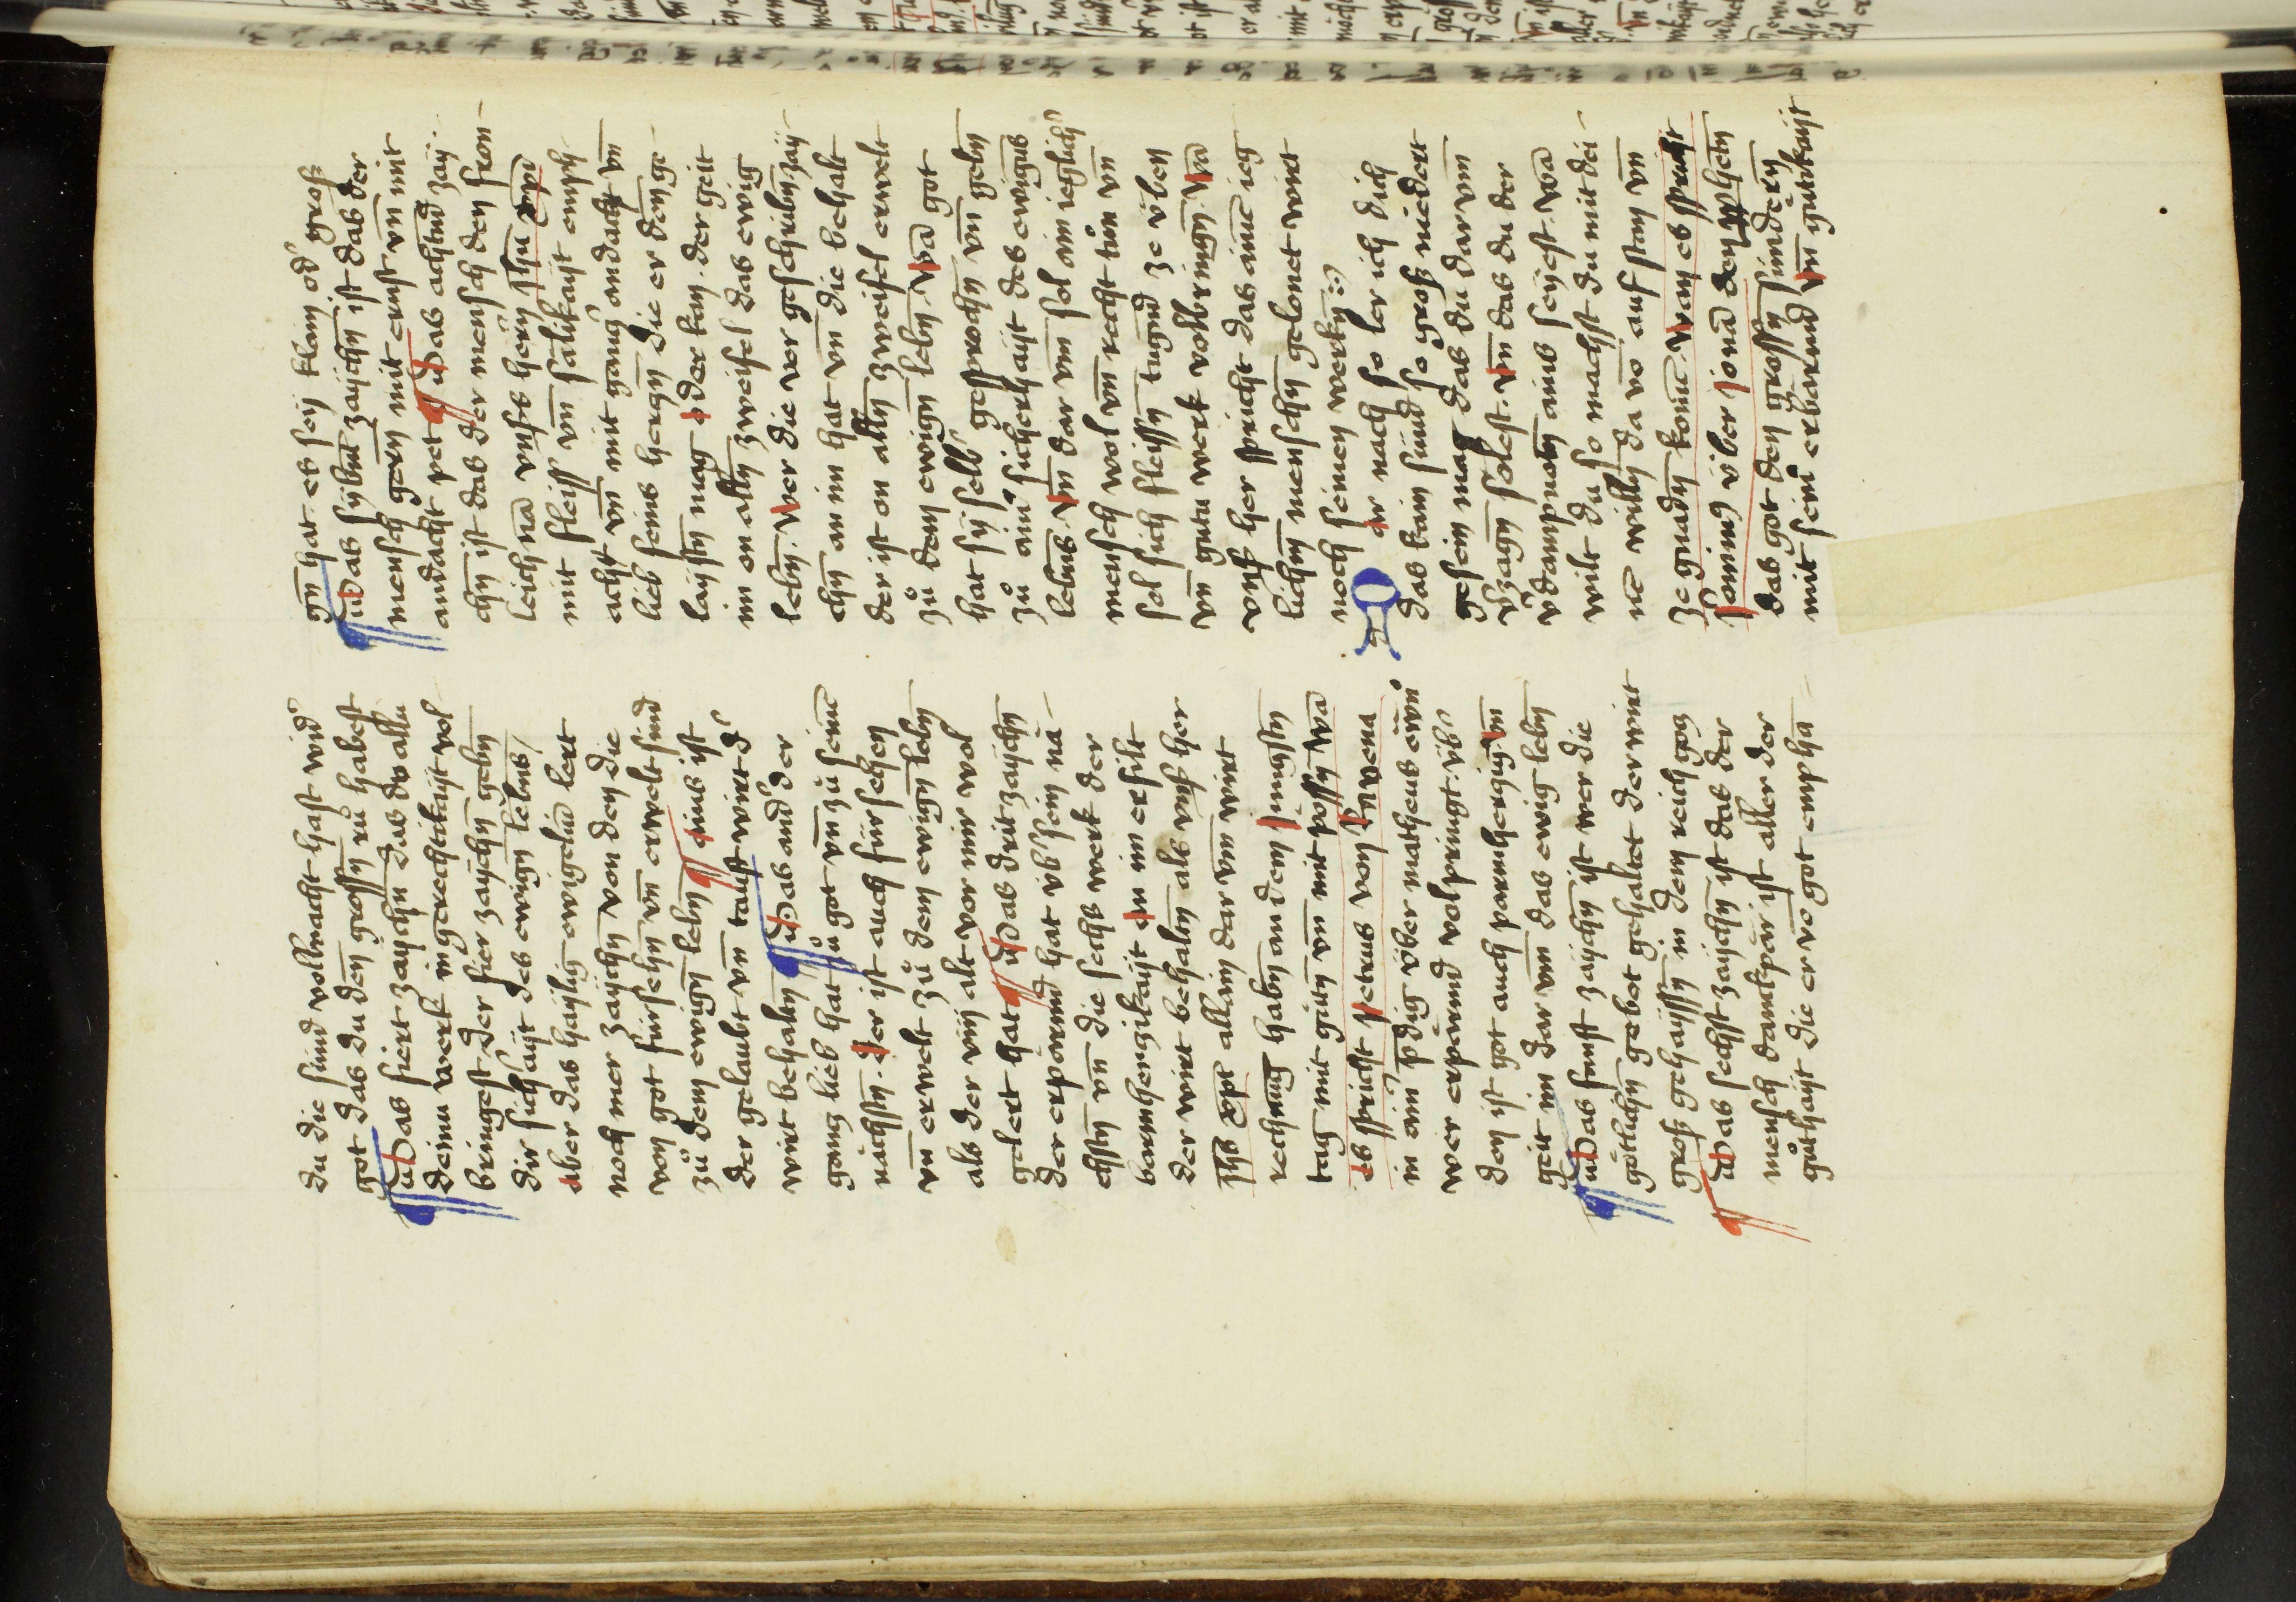 du die sünd volbracht hast wid᾽
got das du den grossn̄ rů habest
¶ Das fiert zaichn̄ das du allu
deinu werk in gerechtikait vol
bringest der fier zaÿchn̄ gebn̄
dir sicḣait des ewign̄ lebns /
aber das haÿlig ewigeliū lert
noch mer zaÿchn̄ von den die
von got fürsechn̄ vn̄ erwelt sind
zů dem ewign̄ lebn̄ ¶ ains ist
der gelaubt vn̄ taust wirt d᾽
wirt behaltn̄ ¶ Das and᾽ der
gancz lieb hat zů got vn̄ zů seinē
nächstn̄. der ist auch für sechen
vn̄ erwelt zů dem ewign̄ lebn̄
als der viij alt vor mir wol
gelert hat ¶ Das drit zaÿchn̄
der erpörmd hat üb᾽ sein nā-
chstn̄ vn̄ die sechs werk der
barmherczikait an im erfilt
der wirt behaltn̄ als vnß her
Ihs xp̄e allain dar vm̄ wirt
rechnūg habn̄ an dem jungstn̄
tag mit gůtn̄ vn̄ mit posn̄ wā
es spricht petrus von Rauena
in ain᾽ p̄dig über matheus ewn̄
wer erpörmd volpringt üb᾽
den ist got auch parmherczig vn̄
geit im dar vm̄ das ewig lebn̄
¶ Das funft zaÿchn̄ ist wer die
götlichn̄ gebot gehaltet der wirt
groß gehaÿssn̄ in dem reich gocz
¶ Das sechst zaÿchn̄ ist das der
mensch danckpär ist aller der
gůthait die er vō got empha
gn̄ hat. es seÿ klain od᾽ groß
¶ Das sÿbent zaÿchn̄ ist das der
mensch gern mit ernst vn̄ mit
andacht pet ¶ Das achtend zaÿ-
chn̄ ist das der mensch den fron-
leichnā vnß hern̄ Jhū xpi
mit fleiss vn̄ sälikait emph
acht vn̄ mit gancz᾽ andacht vn̄
lieb seins herczn̄ die er den ge-
laÿstn̄ mag oder kan. der geit
im on alln̄ zweifel das ewig
lebn̄. Wer die vor geschribn̄ zaÿ-
chn̄ an im hat vn̄ die behalt
der ist on alln̄ zweifel erwelt
zů dem ewign̄ lebn̄. Wā got
hat sÿ selb᾽ gesprochn̄ vn̄ gebn̄
zů ain᾽ sicherhait des ewigus
lebns. Vn̄ dar vm̄ sol ain ieglich᾽
mensch wol vn̄ recht tůn vn̄
sol sich fleissn̄ tugnd ze üben
vn̄ gutu werk volbringn̄. Wā
vnß her spricht das ainē ieg
lichn̄ menschn̄ gelonet wirt
noch seinen werkn̄ :)
Dar nach so ler ich dich
das kain sünd so groß niedert
gesein mag das du dar vm̄
v᾽zagn̄ solest. vn̄ das du der
v᾽dampnotn̄ ains seÿest. Wā
wilt du so machst du mit dei-
nē willn̄ da vō auf stan vn̄
ze gnadn̄ komē. Wen es spricht
über jonā den phetn̄
das got den grossn̄ sündern̄
mit sein᾽ erbärmd vn̄ gutikait